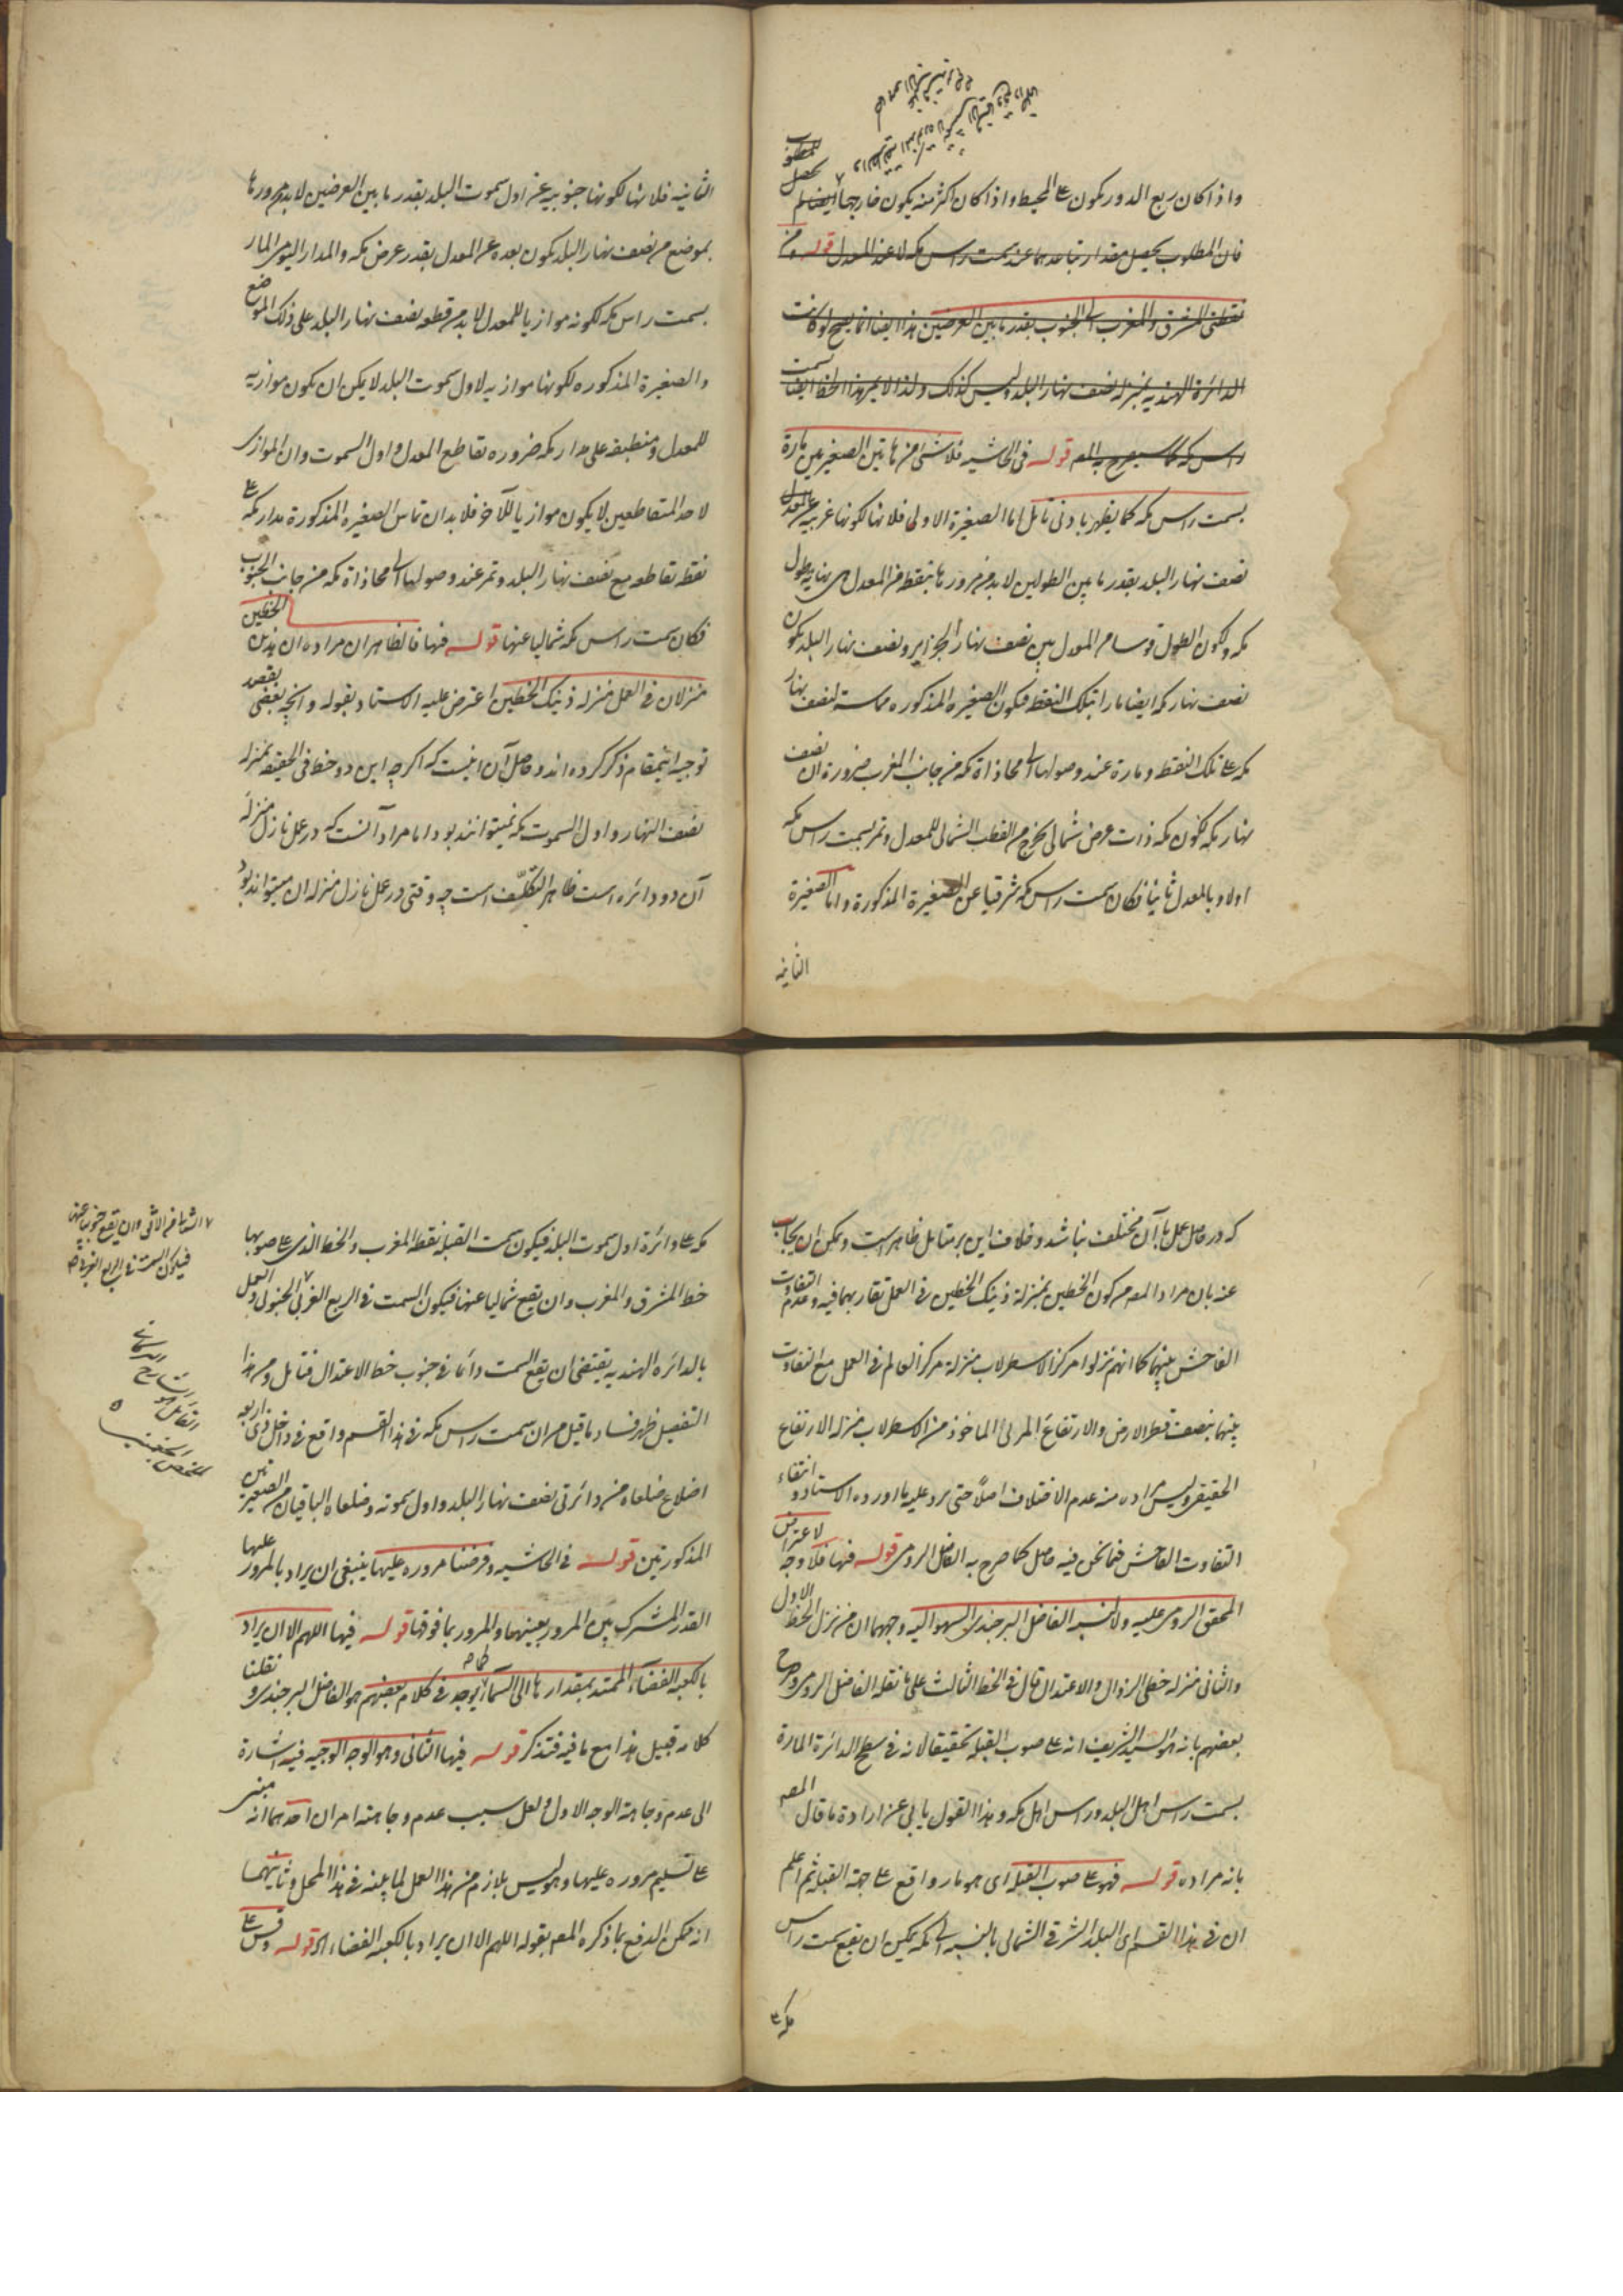 واذا كان ربع الدور يكون ع المحيط واذا كان اكثر منه يكون خارجها ايضا لم
يحصل المطلوب
فان المطلوب يحصل مقدار تباعدهما عند سمت راس مكه لا عند المعدل قوله ومن
نقطتي المشرق والمغرب الى الجنوب بقدر ما بين العرضين هذا ايضا انما يصح لو كانت
الدائرة الهنديه بمنزله نصف نهار البلد وليس كذلك ولذا لا يمر هذا الخط ايضا بسمت
راس مكه كما سيصرح به المص قوله في الحاشيه فلا شئ من هاتين الصغيرتين بمارة
بسمت راس مكه كما يظهر بادنى تامل اما الصغيرة الاولى فلانها لكونها غربيه عن
نصف نهار البلد بقدر ما بين الطولين لا بد من مرورها بنقطه من المعدل هي نهايه طول
مكه ولكون الطول قوسا من المعدل بين نصف نهار الجزاير ونصف نهار البلد يكون
نصف نهار مكه ايضا مارا بتلك النقطه فيكون الصغيرة المذكوره مماسه لنصف نهار
مكه ع تلك النقطه ومارة عند وصولها الى محاذاة مكه من جانب المغرب ضرورة ان نصف
نهار مكه لكون مكه ذات عرض شمالى يخرج من القطب الشمالى للمعدل وتمر بسمت راس مكه
اولا وبالمعدل ثانيا فكان سمت راس مكه شرقيا عن الصغيرة المذكورة واما الصغيرة
الثانيه
الثانيه فلانها لكونها جنوبيه عن اول سموت البلد بقدر ما بين العرضين لا بد من مرورها
بموضع من نصف نهار البلد يكون بعده عن المعدل بقدر عرض مكه والمدار اليومى المار
بسمت راس مكه لكونه موازيا للمعدل لا بد من قطعه نصف نهار البلد على ذلك الموضع
والصغيرة المذكوره لكونها موازيه لاول سموت البلد لا يمكن ان يكون موازيه
للمعدل ومنطبقه على مدار مكه ضروره تقاطع المعدل واول السموت وان الموازى
لاحد المتقاطعين لا يكون موازيا للآخر فلا بد ان تماس الصغيره المذكورة مدار مكه ع
نقطه تقاطعه مع نصف نهار البلد وتمر عند وصولها الى محاذاة مكه من جانب الجنوب
فكان سمت راس مكه شماليا عنها قوله فنها فالظاهر ان مراده ان هذين الخطين
منزلان فى العمل منزله ذينك الخطين اعترض عليه الاستاد بقوله وانچه بعضى بقصد
توجيه اينمقام ذكر كرده اند وحاصل آن اينست كه اكر چه اين دو خط فى الحقيقه بمنزله
نصف النهار واول السموت مكه نميتوانند بود اما مراد آنست كه در عمل نازل منزله
آن دو دائره است ظاهر التكلّف است چه وقتى در عمل نازل منزله آن ميتواند بود
كه در حاصل عمل با آن مختلف نباشد وخلاف اين بر متامل ظاهر است ويمكن ان يجاب
عنه بان مراد المص من كون الخطين بمنزلة ذينك الخطين فى العمل تقاربهما فيه وعدم التفاوت
الفاحش بينهما كما انهم نزلوا مركز الاسطرلاب منزلة مركز العالم فى العمل مع التفاوت
بينهما بنصف قطر الارض والارتفاع المرئى الماخوذ من الاسطرلاب منزله الارتفاع
الحقيقى وليس مراده منه عدم الاختلاف اصلاً حتى يرد عليه ما اورده الاستاد وانتفاء
التفاوت الفاحش فيما نحن فيه حاصل كما صرح به الفاضل الرومى قوله فنها فلا وجه لاعتراض
المحقق الرومى عليه ولا لنسبه الفاضل البرجندى السهو اليه وجههما ان من نزل الخط الاول
والثانى منزله خطى الزوال والاعتدال قال فى الخط الثالث على ما نقله الفاضل الرومى وصرح
بعضهم بانه هو السيد الشريف انه ع صوب القبله تحقيقا لانه فى سطح الدائرة المارة
بسمت راس اهل البلد وراس اهل مكه وهذا القول يابى عن ارادة ما قال المص
بانه مراده قوله فهو ع صوب القبله اى هو مار واقع ع جهة القبله ثم اعلم
ان فى هذا القسم اى البلد الشرقى الشمالى بالنسبه الى مكه يمكن ان يقع سمت راس
مكه ع
مكه ع دائرة اول سموت البلد فيكون سمت القبله نقطه المغرب والخط الذى ع صوبها
خط المشرق والمغرب وان يقع شماليا عنها فيكون السمت فى الربع الغربى الجنوبى والعمل
بالدائره الهنديه يقتضى ان يقع السمت دائما فى جنوب خط الاعتدال فتامل ومن هذا
التفصيل ظهر فساد ما قيل من ان سمت راس مكه فى هذا القسم واقع فى داخل ذى اربعه
اضلاع ضلعاه من دائرتى نصف نهار البلد واول سموته وضلعاه الباقيان من الصغيرتين
المذكورتين قوله فى الحاشيه وفرضنا مروره عليها ينبغى ان يراد بالمرور عليها
القدر المشترك بين المرور بعينها والمرور بما فوقها قوله فيها اللهم الا ان يراد
بالكعبه الفضاء الممتد بمقدارها الى السماء يوجد فى كلام بعضهم هو الفاضل البرجندى ونقلنا
كلامه قبيل هذا مع ما فيه فتذكر قوله فيها الثانى وهو الوجه الوجيه فيه اشارة
الى عدم وجاهة الوجه الاول ولعل سبب عدم وجاهته امران احدهما انه مبنى
ع تسليم مروره عليها وهو ليس بلازم من هذا العمل لما بينه فى هذا المحل وثانيهما
انه يمكن الدفع بما ذكره المص بقوله اللهم الا ان يراد بالكعبه الفضاء الخ قوله وقس ع